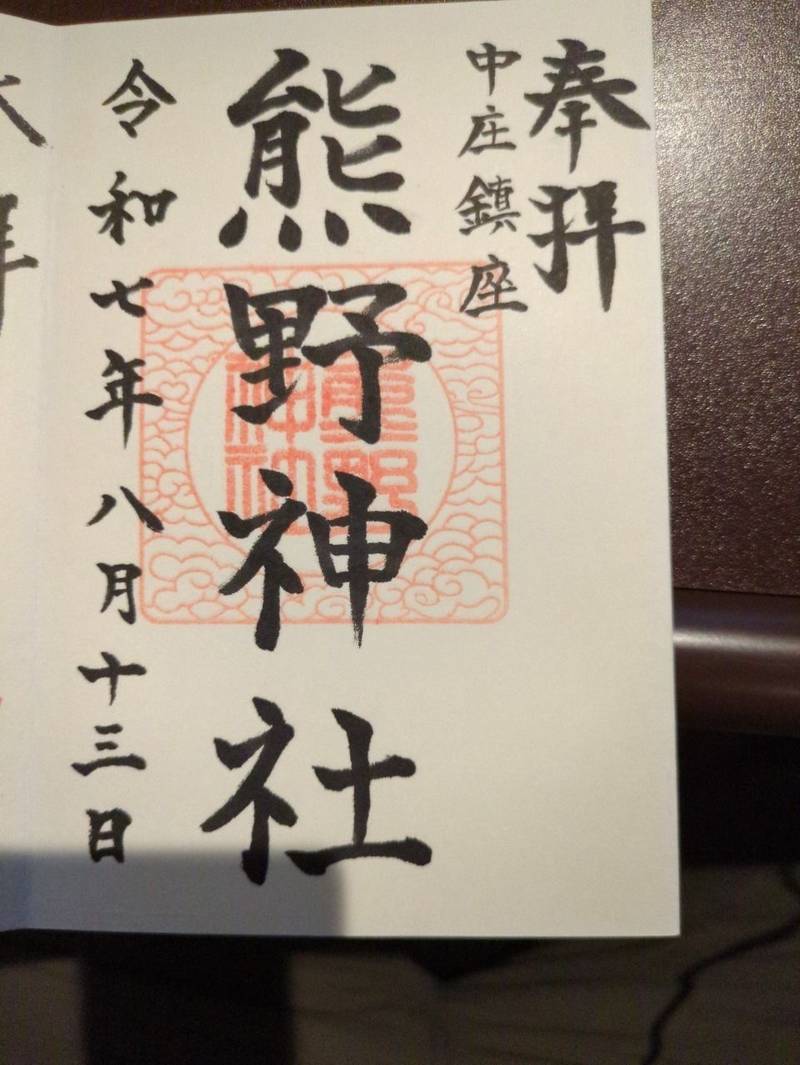 奉拝
中庄鎮座
熊野神社
熊野
神社
令和七年八月十三日
拝